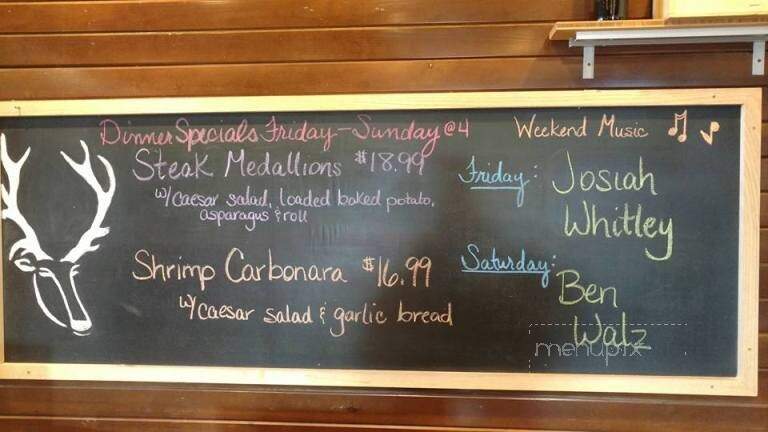 Dinner Specials Friday - Sunday @4
Steak Medallions $18.99
w/caesar salad, loaded baked potato,
asparagus & roll
Shrimp Carbonara $16.99
w/caesar salad & garlic bread
Weekend Music
Friday: Josiah
Whitley
Saturday:
Ben
Walz
menupix